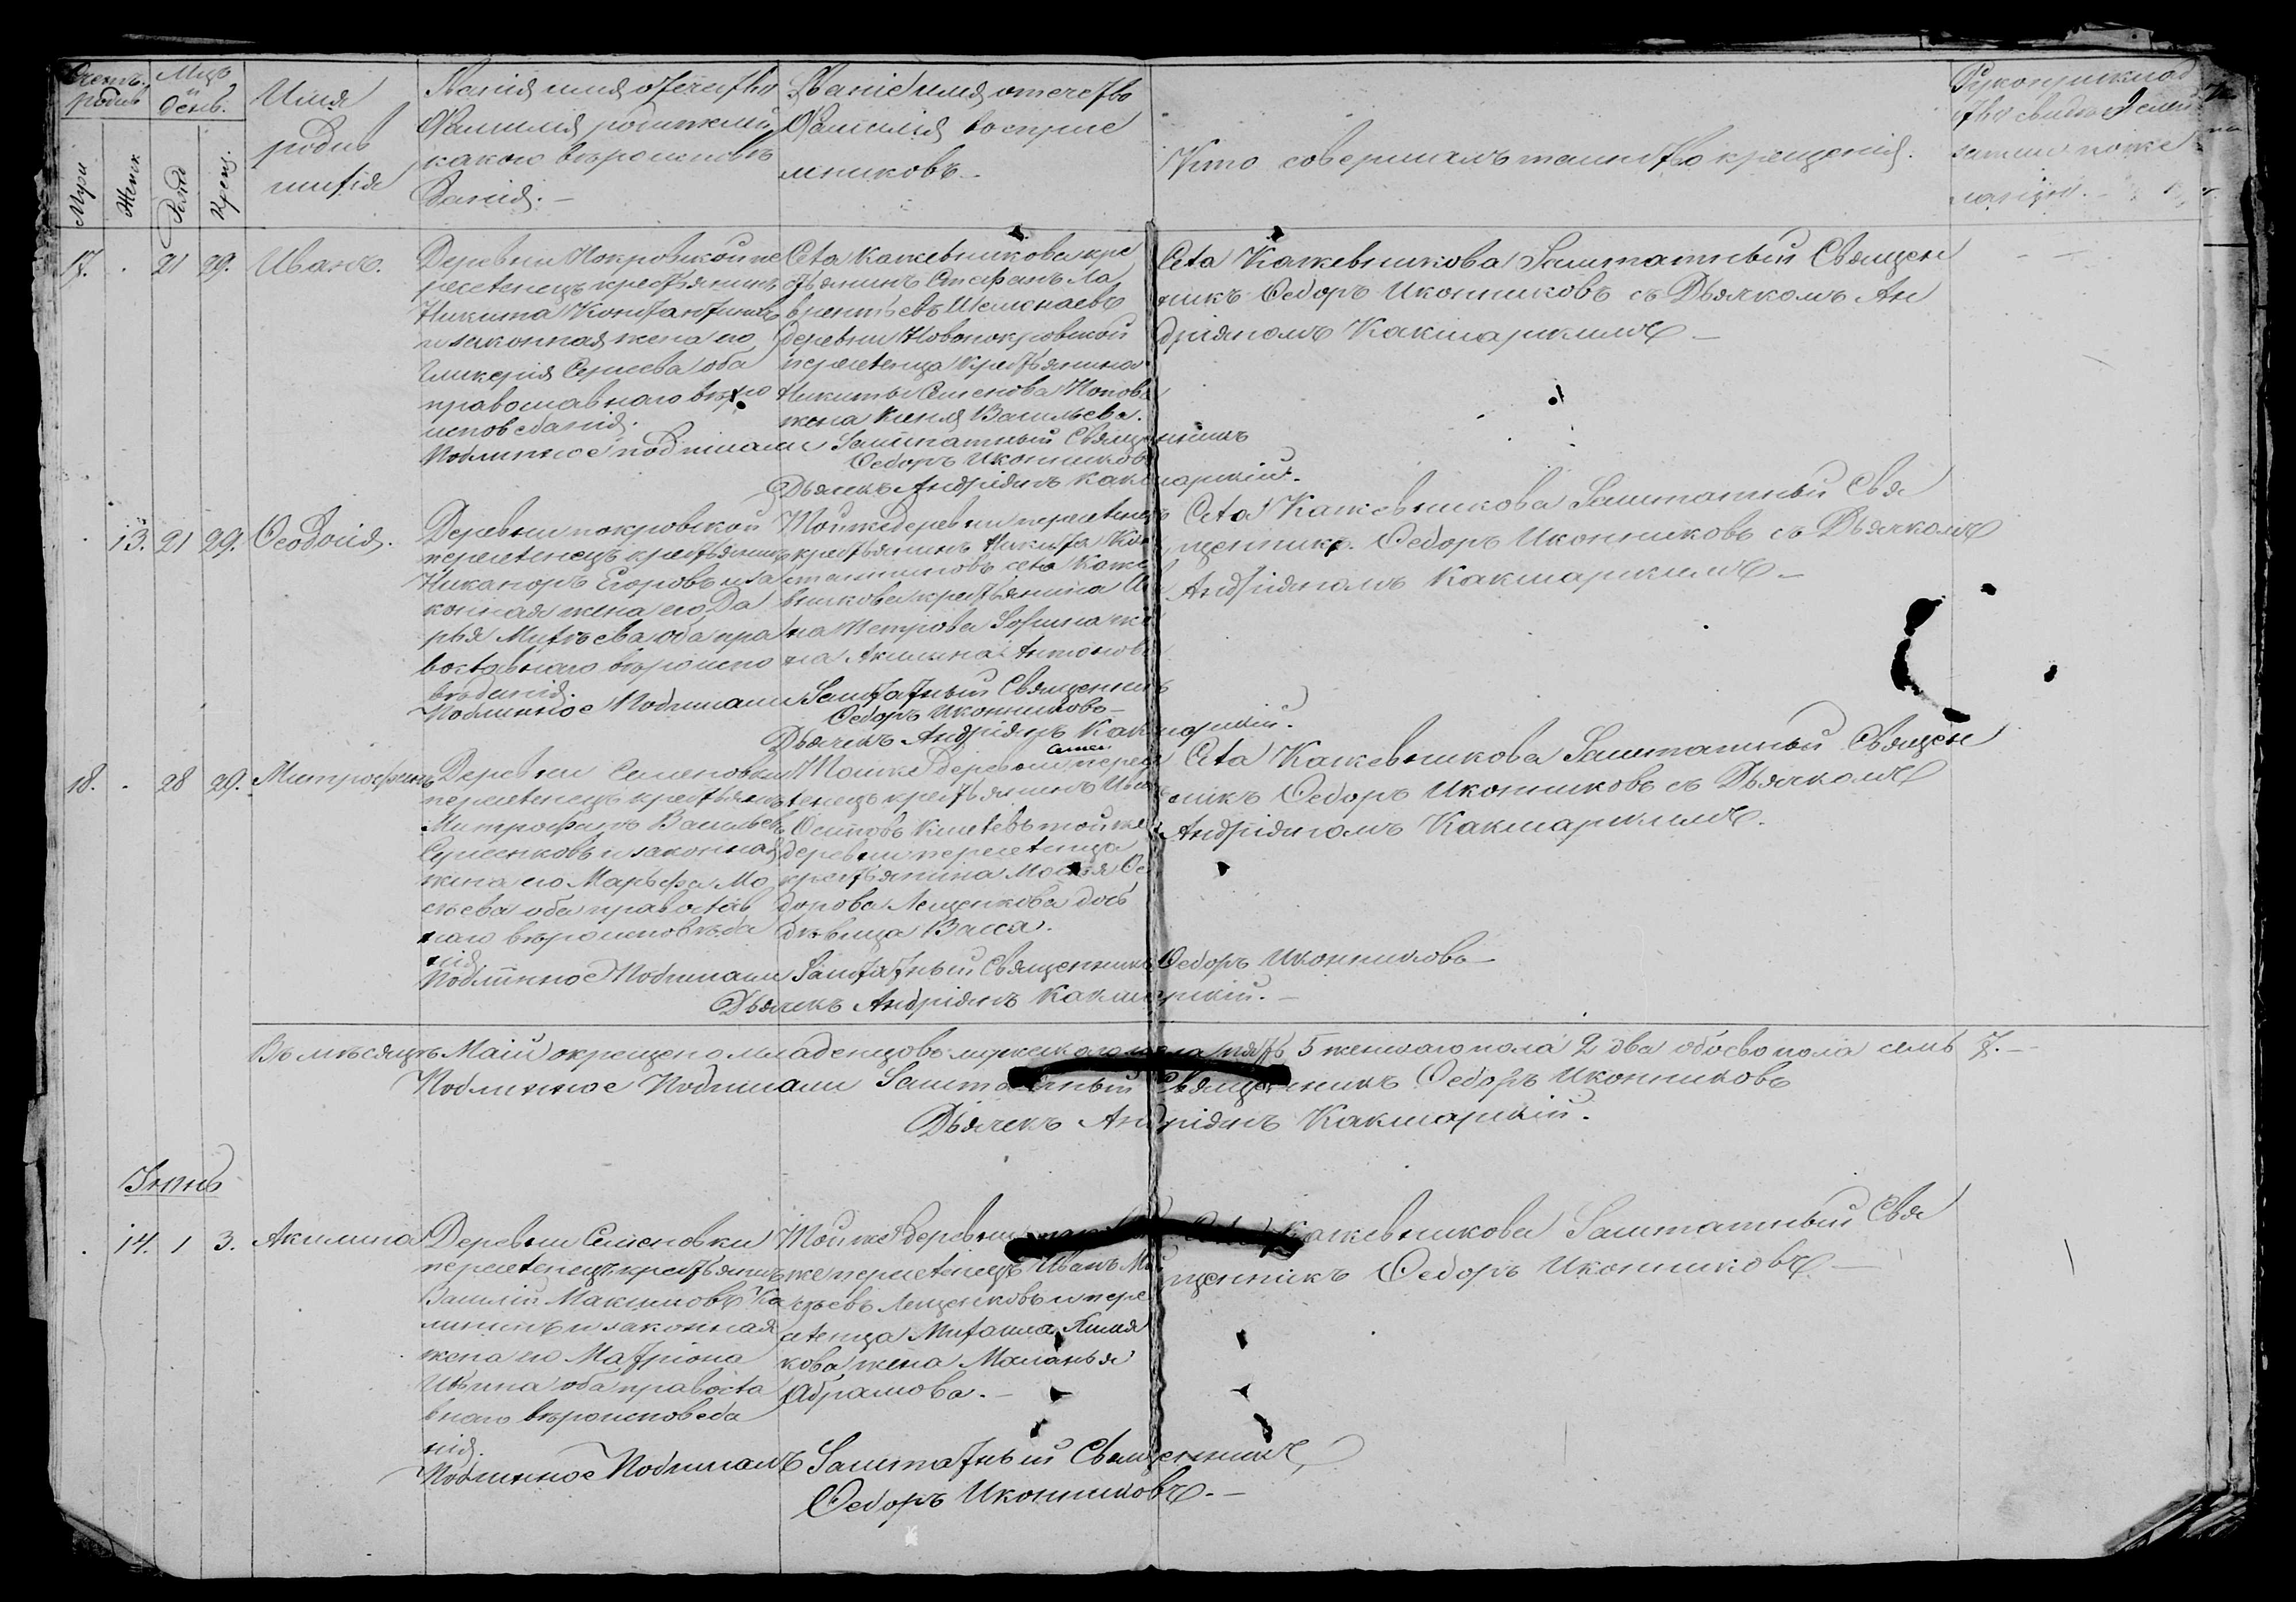 Счетъ родив
Мцъ и день.
Имя родив шихся
Званія имя отечество
Фамилія родителей
какого вѣроисповѣ
данія. —
Званіе имя отечество
Фамилія воспріе
мниковъ.
Кто совершалъ таинство крещенія.
Рукоприклад
ство свидѣтелей
записи по же
ланію. —
Муж
Женск
Рожд
Крещ.
17. . 21 29. Иванъ.
Деревни Покровской пе
реселенецъ крестьянинъ
Никита Константиновъ
и законная жена его
Гликерія Сергеева оба
православнаго вѣро
исповеданія.
Села Кожевникова кре
стьянинъ Стефанъ Ла
врентьевъ
деревни Новопокровской
переселенца крестьянина
Никиты Семенова Попова
жена Васильева.
Села Кожевникова Заштатный Священ
никъ Ѳедоръ Иконниковъ съ Дьячкомъ Ан
дріяномъ Какшарскимъ —
Подлинное подписали Заштатный Священникъ
Ѳедоръ Иконниковъ
Дьячекъ Андріянъ Какшарскій.
. 13. 21 29. Ѳеодосія.
Деревни покровской
переселенецъ крестьянинъ
Никаноръ Егоровъ и за
конная жена его Да
рья Матвѣева оба пра
вославнаго вѣроиспо
вѣданія.
Той же деревни переселенецъ
крестьянинъ Никита Кон
стантиновъ села Коже
вникова крестьянина
на Петрова Зорина же
на Акилина Антонова
Села Кожевникова Заштатный Свя
щенникъ Ѳедоръ Иконниковъ съ Дьячкомъ
Андріяномъ Какшарскимъ —
Подлинное Подписали Заштатный Священникъ
Ѳедоръ Иконниковъ —
Дьячекъ Андріянъ Какшарскій.
18. . 28 29. Митрофанъ
Деревни Семеновки
переселенецъ крестьянинъ
Митрофанъ Васильевъ
Сергеенковъ и законная
жена его Марѳа Мо
сеева оба православ
наго вѣроисповѣда
нія.
Той же деревни пересе
ленецъ крестьянинъ Иванъ
Осиповъ Киселевъ той же
деревни переселенца
крестьянина Мосея Ѳе
дорова Лещенкова дочь
дѣвица Васса.
Села Кожевникова Заштатный Священ
никъ Ѳедоръ Иконниковъ съ Дьячкомъ
Андріяномъ Какшарскимъ.
Подлинное Подписали Заштатный Священникъ Ѳедоръ Иконниковъ —
Дьячекъ Андріянъ Какшарскій. —
Въ мѣсяцѣ Маіи окрещено младенцовъ мужескаго пола пять 5 женскаго пола 2 два обоево пола семь 7. —
Подлинное Подписали Заштатный Священникъ Ѳедоръ Иконниковъ
Дьячекъ Андріянъ Какшарскій.
Іюнь
. 14. 1 3. Акилина
Деревни Семеновки
переселенецъ крестьянинъ
Василій Максимовъ Ка
линин и законная
жена его Матріона
Ильина оба правосла
внаго вѣроисповеда
нія.
Той же деревни
же переселенецъ Иванъ Мо
сеевъ Лещенковъ и пере
селенца Михаила
кова жена Маланья
Абрамова. —
Села Кожевникова Заштатный Свя
щенникъ Ѳедоръ Иконниковъ —
Подлинное Подписалъ Заштатный Священникъ
Ѳедоръ Иконниковъ. —